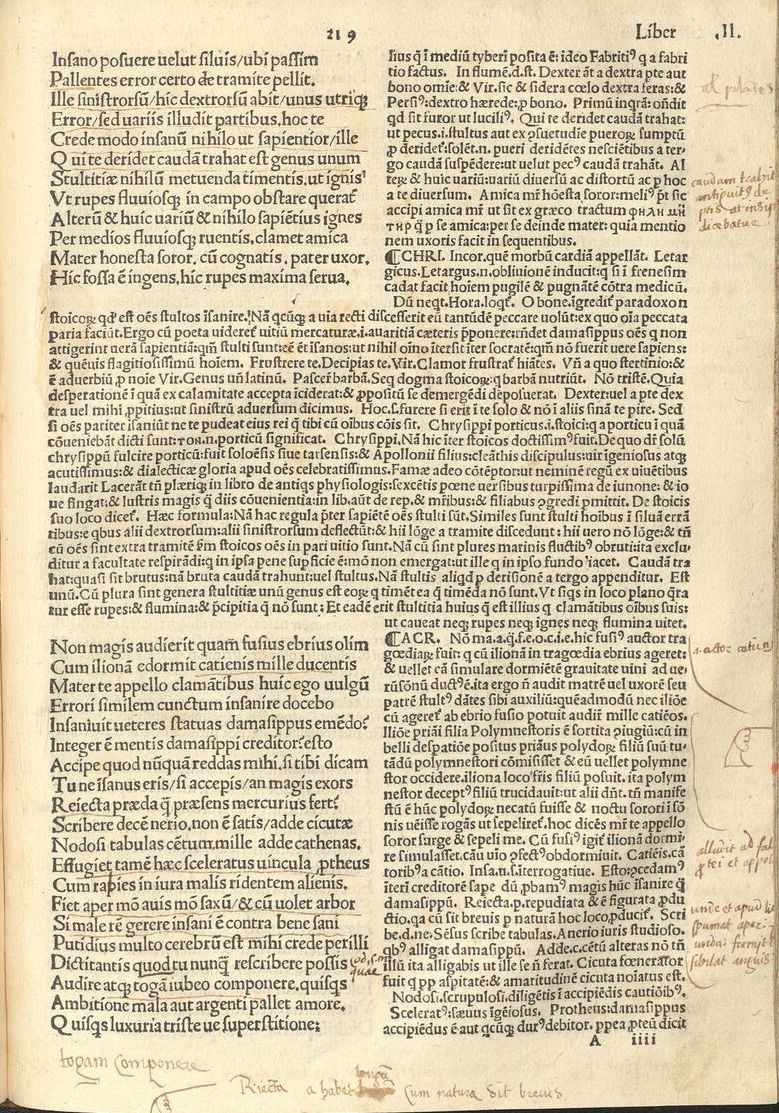 219
Liber .II.
Insano posuere uelut siluis/ubi passim
Pallentes error certo de tramite pellit.
Ille sinistrorsũ/hic dextrorsũ abit/unus utriqꝫ
Error/sed uariis illudit partibus.hoc te
Crede modo insanũ nihilo ut sapientior/ille
Qui te deridet caudã trahat est genus unum
Stultitiæ nihilũ metuenda timentis.ut ignis
Vt rupes fluuiosqꝫ in campo obstare querat᷑
Alterũ & huic uariũ & nihilo sapiẽtius ignes
Per medios fluuiosqꝫ ruentis.clamet amica
Mater honesta soror, cũ cognatis, pater uxor.
Hic fossa ẽ ingens.hic rupes maxima serua.
lius q̃ ĩ mediũ tyberĩ posita ẽ: ideo Fabritiꝰ q a fabri
tio factus. In flumẽ.d.st. Dexter ãt a dextra pte aut
bono omĩe:& Vir.sic & sidera cœlo dextra feras:&
Persiꝰ:dextro hærede:ꝓ bono. Primũ inqrã:oñdit
qd sit furor ut luciliꝰ. Qui te deridet caudã trahat:
ut pecus.i.stultus aut ex ꝯsuetudie pueroꝝ sumptũ
ꝑ deridet᷑:solẽt.n. pueri deridẽtes nesciẽtibus a ter-
go caudã suspẽdere:ut uelut pecꝰ caudã trahãt. Al
teꝝ & huic uariũ:uariũ diuersũ ac distortũ ac ꝓ hoc
a te diuersum. Amica mr̃ hõesta.soror:meliꝰ pt̃ sic
accipi amica mr̃ ut sit ex græco tractum φηλη μη
τηρ q̃ p se amica:per se deinde mater: quia mentio
nem uxoris facit in sequentibus.
¶CHRI. Incor.quẽ morbũ cardiã appellãt. Letar
gicus.Letargus.n.obliuionẽ inducit:q si ĩ frenesim
cadat facit hoĩem pugilẽ & pugnãtẽ cõtra medicũ.
Dũ neqt.Hora.loqt᷑. O bone.ĩgredit᷑ paradoxon
stoicoꝝ qd̃ est oẽs stultos ĩsanire. Nã qcũqꝫ a uia recti discesserit eũ tantũdẽ peccare uolũt:ex quo oĩa peccata
paria faciũt.Ergo cũ poeta uideret᷑ uitiũ mercaturæ.i.auaritiã cæteris p̃ponere:rñdet damasippus oẽs q non
attigerint uerã sapientiã:qm̃ stulti sunt:eẽ et ĩsanos:ut nihil oĩno ĩtersit ĩter socratẽ:qm̃ nõ fuerit uere sapiens:
& quẽuis flagitiosissimũ hoĩem. Frustrere te.Decipias te.Vir.Clamor frustrat᷑ hiãtes. Vñ a quo stertinio:&
ẽ aduerbiũ ꝓ noĩe Vir.Genus uñ latinũ. Pascer̃ barbã.Seq dogma stoicoꝝ:q barbã nutriũt. Nõ tristẽ.Quia
desperationẽ ĩ quã ex calamitate accepta ĩciderat:& ꝓpositũ se demergẽdi deposuerat. Dexter:uel a pte dex
tra uel mihi ꝓpitius:ut sinistrũ aduersum dicimus. Hoc.f.furere si erit ĩ te solo & nõ ĩ aliis sinã te pire. Sed
si oẽs pariter ĩsaniũt ne te pudeat eius rei q̃ tibi cũ oĩbus cõis sit. Chrysippi porticus.i.stoici:q a porticu ĩ quã
cõueniebãt dicti sunt:τοη.n.porticũ significat. Chrysippi.Nã hic ĩter stoicos doctissimꝰfuit.De quo dr̃ solũ
chrysippũ fulcire porticũ:fuit soloẽsis siue tarsensis:& Apollonii filius:cleãthis discipulus:uir ĩgeniosus atqꝫ
acutissimus:& dialecticæ gloria apud oẽs celebratissimus.Famæ adeo cõtẽptor:ut neminẽ regũ ex uiuẽtibus
laudarit Lacerãt tñ pleriqꝫ in libro de antiqs physiologis:sexcẽtis pœne uersibus turpissima de iunone:& io
ue fingat:& lustris magis q̃ diis cõuenientia:in lib.aũt de rep.& mr̃ibus:& filiabus ꝯgredi pmittit. De stoicis
suo loco dicet᷑. Hæc formula:Nã hac regula p̃ter sapiẽtẽ oẽs stulti sũt.Similes sunt stulti hoĩbus ĩ siluã errã
tibus:e qbus alii dextrorsum:alii sinistrorsum deflectũt:& hii lõge a tramite discedunt: hii uero nõ lõge:& tñ
cũ oẽs sint extra tramitẽ sm̃ stoicos oẽs in pari uitio sunt.Nã cũ sint plures marinis fluctibꝰ obruti:ita exclu-
ditur a facultate respirãdi:q in ipsa pene supficie ẽ:mõ non emergat:ut ille q in ipso fundo iacet. Caudã tra
hat:quasi sit brutus:nã bruta caudã trahunt:uel stultus.Nã stultis aliqd ꝓ derisionẽ a tergo appenditur. Est
unũ.Cũ plura sint genera stultitiæ unũ genus est eoꝝ q timẽt ea q̃ timẽda nõ sunt.Vt siqs in loco plano q̃ra
tur esse rupes:& flumina:& p̃cipitia q̃ nõ sunt: Et eadẽ erit stultitia huius q̃ est illius q clamãtibus oĩbus suis:
ut caueat neqꝫ rupes neqꝫ ignes neqꝫ flumina uitet.
Non magis audierit quam̃ fusius ebrius olim
Cum ilionã edormit catienis mille ducentis
Mater te appello clamãtibus huic ego uulgũ
Errori similem cunctum insanire docebo
Insaniuit ueteres statuas damasippus emẽdo?
Integer ẽ mentis damasippi creditor?esto
Accipe quod nũquã reddas mihi.si tibi dicam
Tu ne ĩsanus eris/si accepis/an magis exors
Reiecta præda q̃ præsens mercurius fert?
Scribere decẽ nerio.non ẽ satis/adde cicutæ
Nodosi tabulas cẽtum.mille adde cathenas.
Effugiet tamẽ hæc sceleratus uincula ꝓtheus
Cum rapies in iura malis ridentem alienis.
Fiet aper mõ auis mõ saxũ/& cũ uolet arbor
Si male rẽ gerere insani ẽ contra bene sani
Putidius multo cerebrũ est mihi crede perilli
Dictitantis quod tu nunq̃ rescribere possis
Audire atqꝫ togã iubeo componere.quisqs
Ambitione mala aut argenti pallet amore.
Quisqs luxuria tristi ue superstitione:
¶ACR. Nõ ma.a.q̃.f.e.o.c.i.e.hic fusiꝰ auctor tra
gœdiaꝝ fuit: q cũ ilionã in tragœdia ebrius ageret:
& uellet cã simulare dormiẽtẽ grauitate uini ad ue-
rũ sõnũ ductꝰẽ.ita ergo ñ audit matrẽ uel uxorẽ seu
patrẽ stultꝰ dãtes sibi auxiliũ:quẽadmodũ nec iliõẽ
cũ ageret᷑ ab ebrio fusio potuit audir̃ mille catiẽos.
Iliõe priãi filia Polymnestoris ẽ sortita ꝯiugiũ:cũ in
belli despatiõe positus priãus polydoꝝ filiũ suũ tu-
tãdũ polymnestori cõmisisset & eũ uellet polymne
stor occidere.iliona loco fris filiũ posuit.ita polym
nestor deceptꝰ filiũ trucidauit:ut alii dñt.tñ manife
stũ ẽ hũc polydoꝝ necatũ fuisse & noctu sorori ĩ sõ
nis uẽisse rogãs ut sepeliret᷑.hoc dicẽs mr̃ te appello
soror surge & sepeli me. Cũ fusiꝰ igit᷑ ilionã dormi-
re simulasset.cãu uio ꝯsectꝰobdormiuit. Catiẽis.cã
toribꝰa cãtio. Insa.u.s.ĩterrogatiue. Esto:ꝯcedamꝰ
ĩteri creditorẽ sape dũ ꝓbamꝰ magis hũc ĩsanire q̃
damasippũ. Reiecta.p.repudiata & ẽ figurata ꝓdu
ctio.qa cũ sit breuis p naturã hoc loco.ꝓducit᷑. Scri
be.d.ne.Sẽsus scribe tabulas.A nerio iuris studioso.
qbꝰ alligat damasippũ. Adde.c.cẽtũ alteras nõ tñ
illũ ita alligabis ut ille se ñ ferat. Cicuta fœnerator
fuit q pp aspitatẽ:& amaritudinẽ cicuta noĩatus est.
Nodosi.scrupulosi.diligẽtis ĩ accipiẽdis cautiõibꝰ.
Sceleratꝰ:sæuus ĩgẽiosus. Protheus:damasippus
accipiẽdus ẽ aut qcũqꝫ durꝰdebitor.ppea ꝓteũ dicit
A iiii
togam componere
Riecta a habet longũ cum natura sit breuis